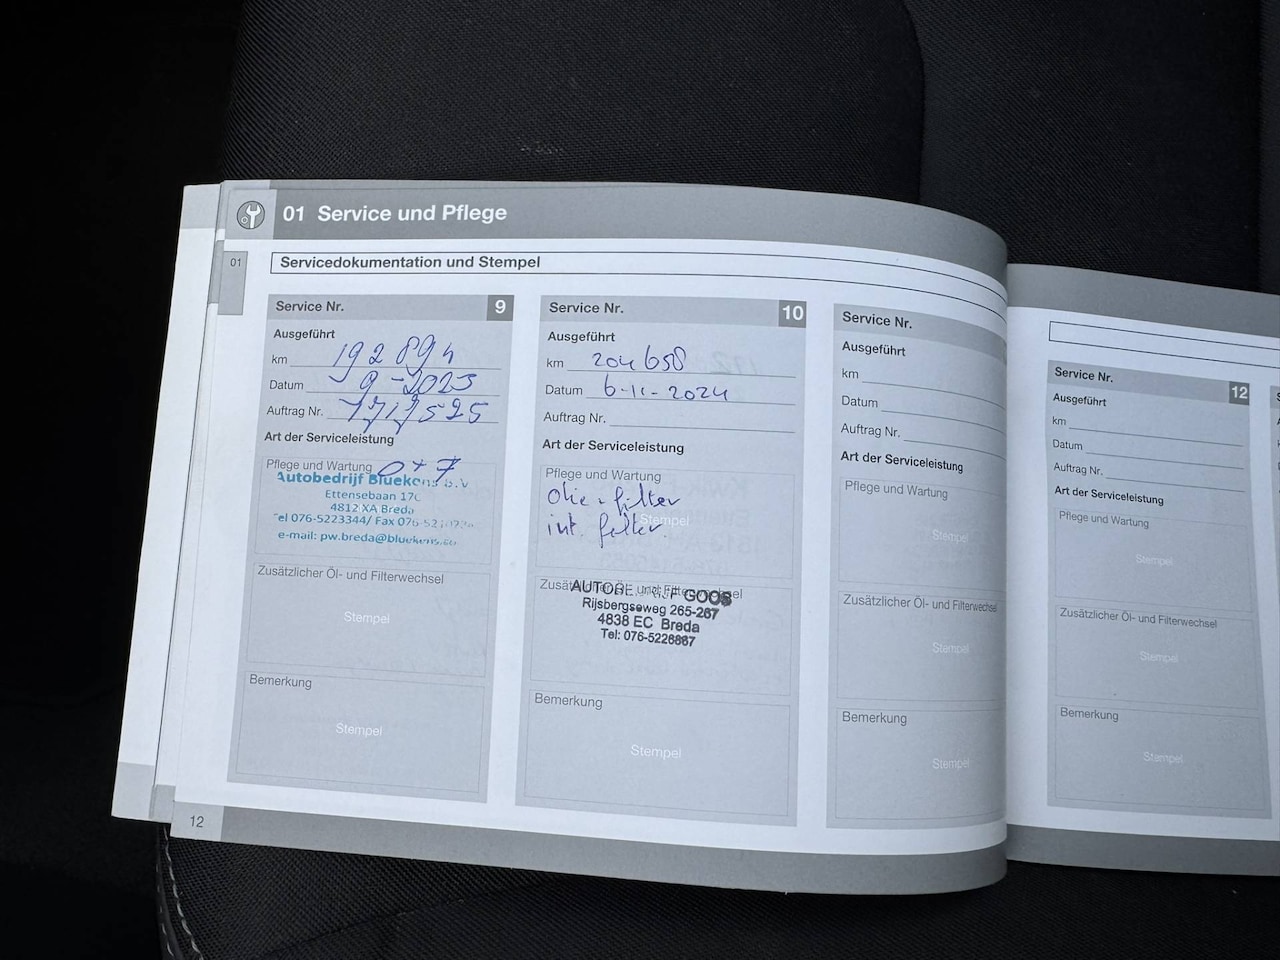 01 Service und Pflege
01
Servicedokumentation und Stempel
Service Nr. 9
Ausgeführt
km 192894
Datum 9-2023
Auftrag Nr.
Art der Serviceleistung
Pflege und Wartung
Autobedrijf Bluekens B.V
Ettensebaan 17
4812 XA Breda
Tel 076-5223344/ Fax 076-52
e-mail: pw.breda@bluekens.
Zusätzlicher Öl- und Filterwechsel
Stempel
Bemerkung
Stempel
Service Nr. 10
Ausgeführt
km 204658
Datum 6-11-2024
Auftrag Nr.
Art der Serviceleistung
Pflege und Wartung
Olie-filter
Stempel
int. filter.
Zusätzlicher Öl- und Filterwechsel
GOOS
Rijsbergseweg 265-267
4838 EC Breda
Tel: 076-5226867
Bemerkung
Stempel
Service Nr.
Ausgeführt
km
Datum
Auftrag Nr.
Art der Serviceleistung
Pflege und Wartung
Stempel
Zusätzlicher Öl- und Filterwechsel
Stempel
Bemerkung
Stempel
12
Service Nr. 12
Ausgeführt
km
Datum
Auftrag Nr.
Art der Serviceleistung
Pflege und Wartung
Stempel
Zusätzlicher Öl- und Filterwechsel
Stempel
Bemerkung
Stempel